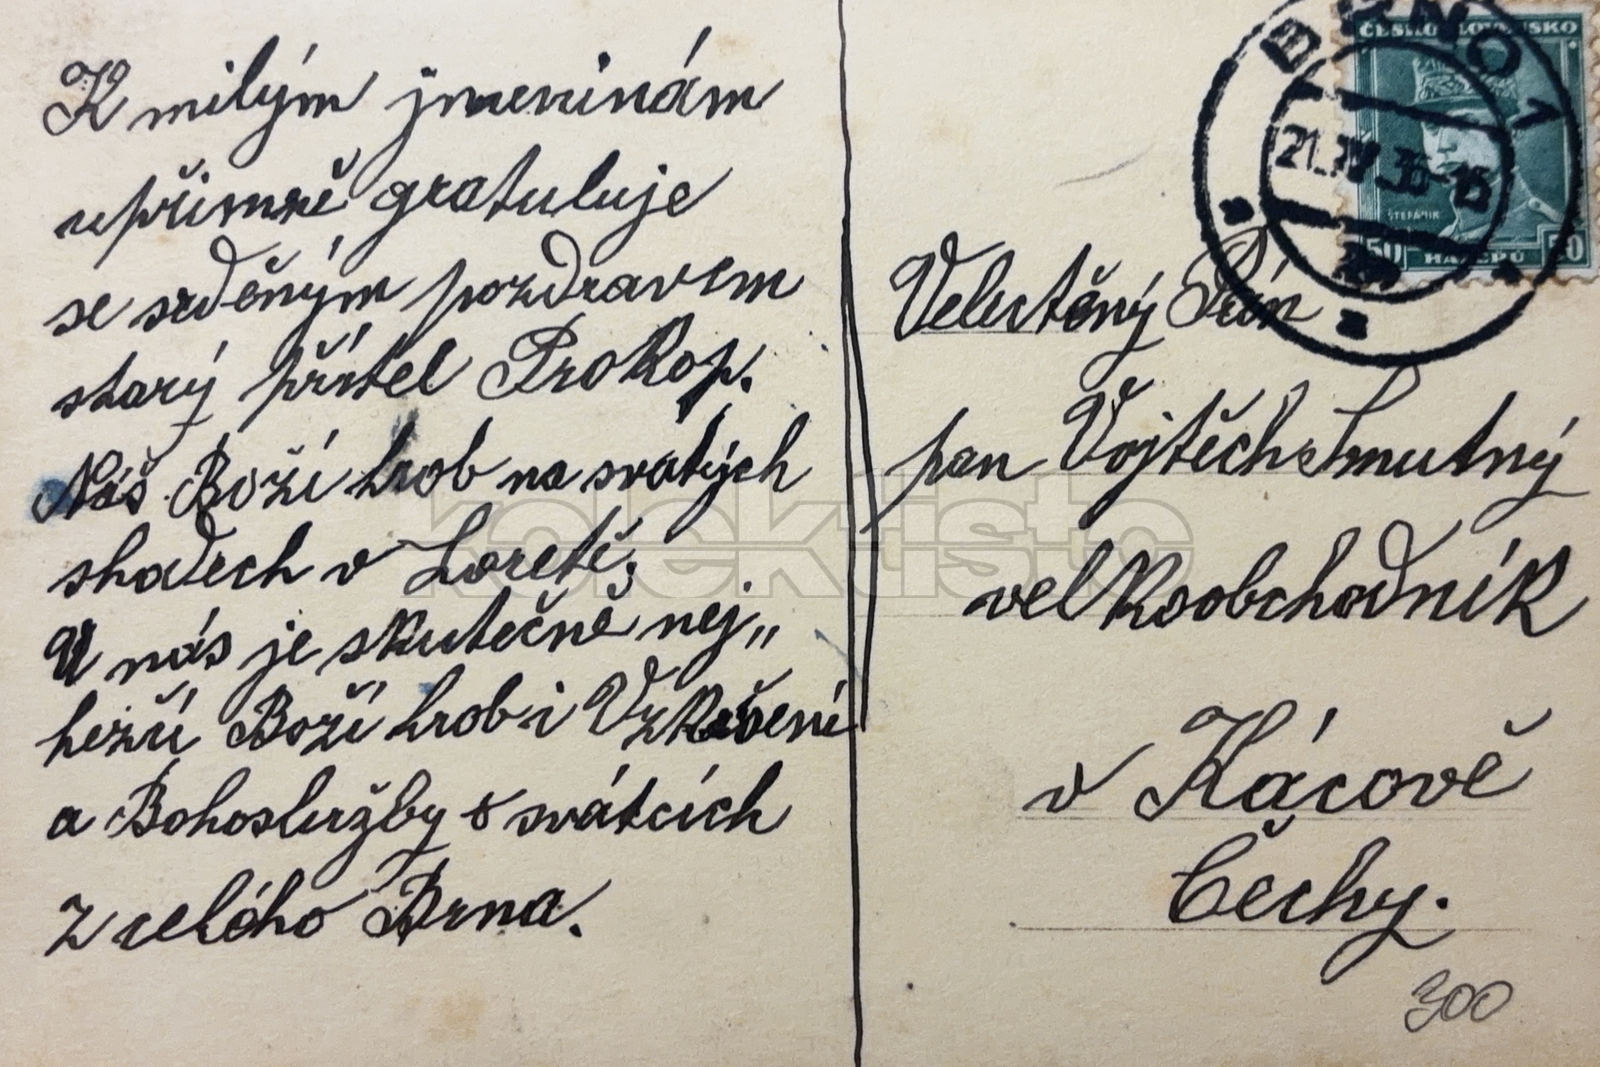 K milým jmeninám
upřimně gratuluje
se srděným pozdravem
starý přítel Prokop.
Náš Boží hrob na svatých
shodech v Loretě,
U nás je skutečně nej„
hezčí Boží hrob i Vzkříšení
a Bohoslužby o svátcích
z celého Brna.
BRNO 1
21.IV.35-15
ČESKOSLOVENSKO
ŠTEFÁNIK
50 HALÉŘŮ 50
Velectěný Pán
pan Vojtěch Smutný
velkoobchodník
v Kácově
Čechy.
300
kolektisto